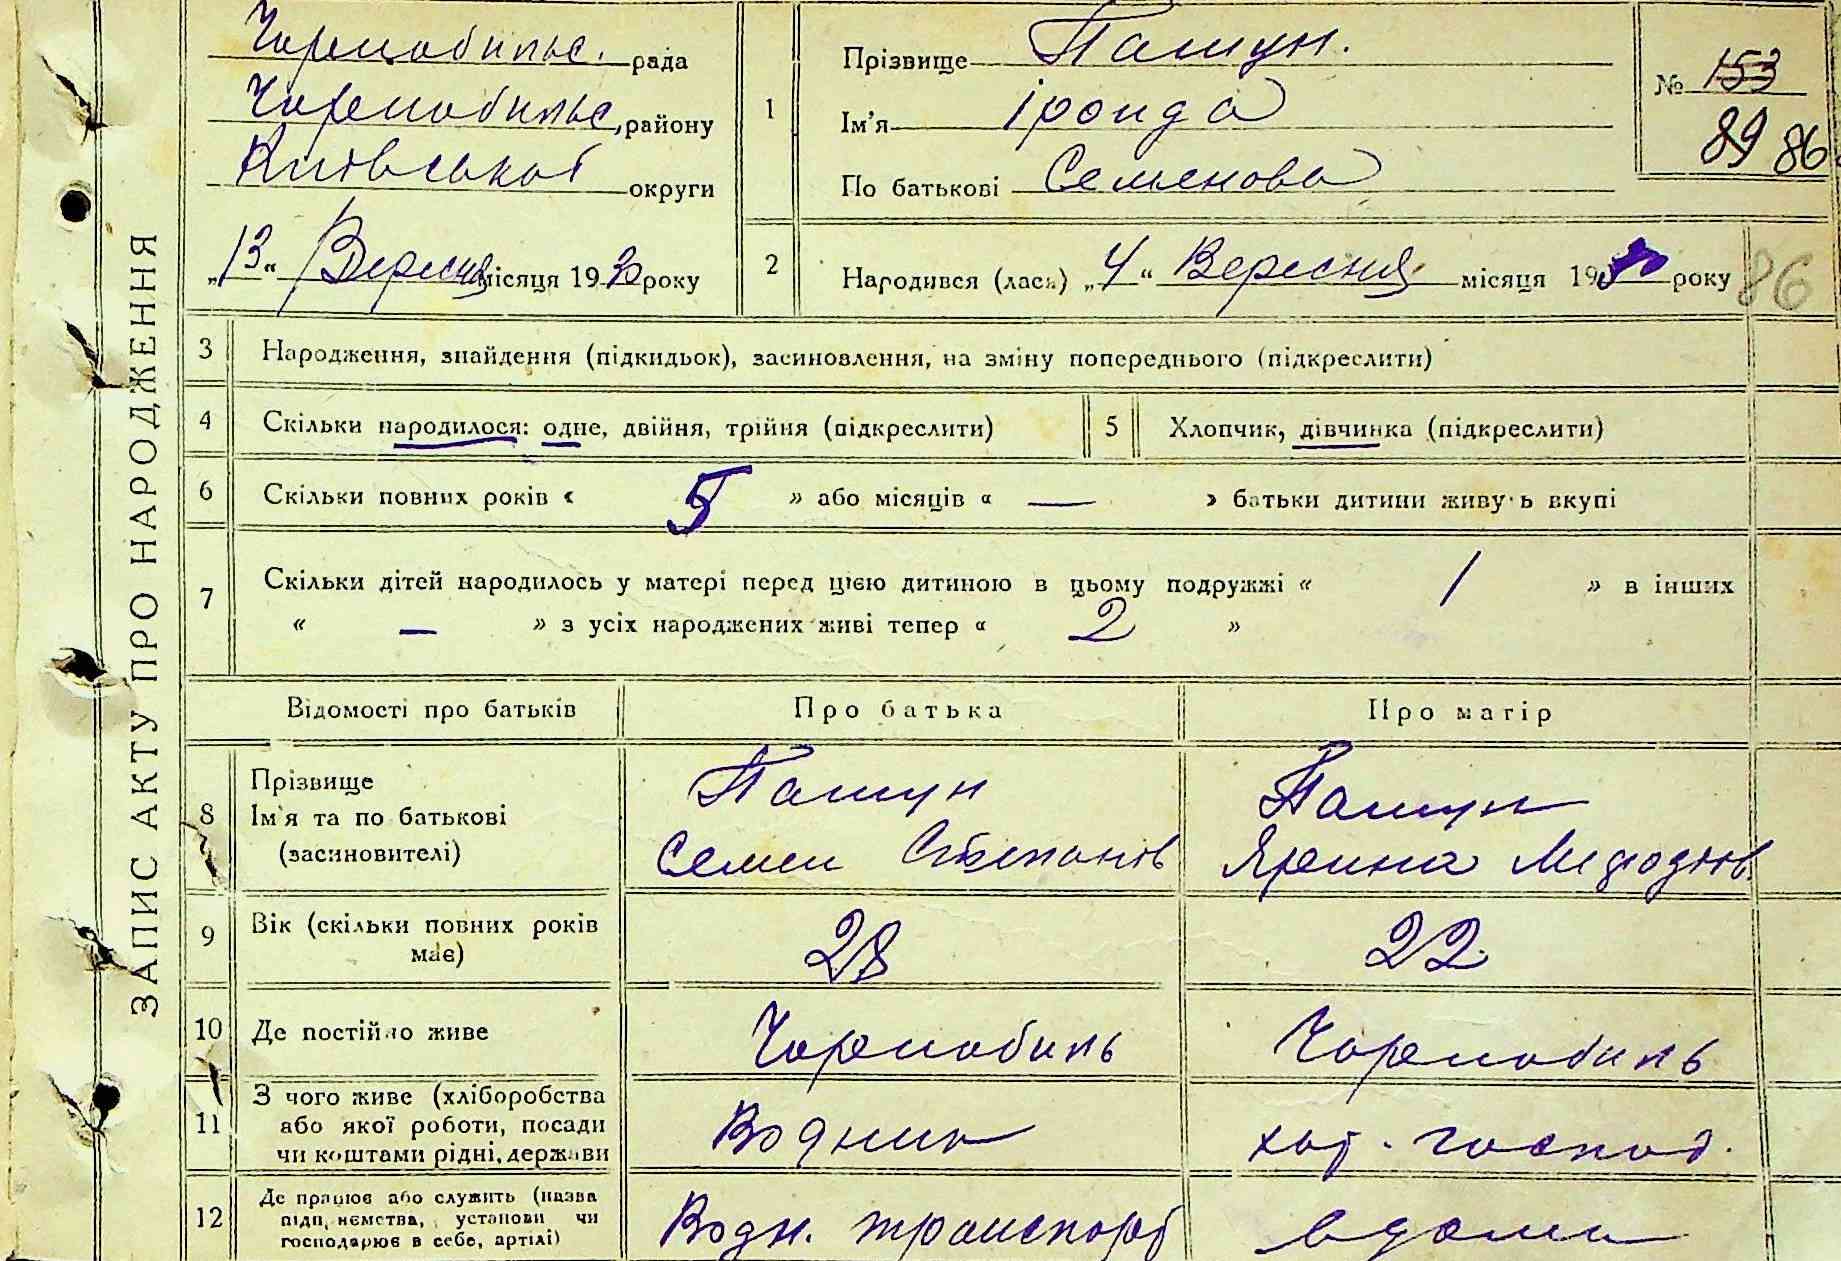 ЗАПИС АКТУ ПРО НАРОДЖЕННЯ
Чорнобильс. рада
Чорнобильс. району
Київської округи
„13“ Вересня місяця 1930 року
1
Прізвище Пашун.
Ім'я Іроида
По батькові Семенова
№ 153
89 86
2
Народився (лась) „4“ Вересня місяця 1930 року
86
3 Народження, знайдення (підкидьок), засиновлення, на зміну попереднього (підкреслити)
4 Скільки народилося: одне, двійня, трійня (підкреслити)
5 Хлопчик, дівчинка (підкреслити)
6 Скільки повних років « 5 » або місяців « — » батьки дитини живуть вкупі
7 Скільки дітей народилось у матері перед цією дитиною в цьому подружжі « 1 » в інших
« — » з усіх народжених живі тепер « 2 »
Відомості про батьків Про батька Про матір
8 Прізвище
Ім'я та по батькові
(засиновителі)
Пашун
Семен Степанів
Пашун
Ярина Мефодіїв
9 Вік (скільки повних років
має)
28 22
10 Де постійно живе Чорнобиль Чорнобиль
11 З чого живе (хліборобства
або якої роботи, посади
чи коштами рідні, держави
Водник хат. господ.
12 Де працює або служить (назва
підприємства, установи чи
господарює в себе, артілі)
Водн. транспорт вдома